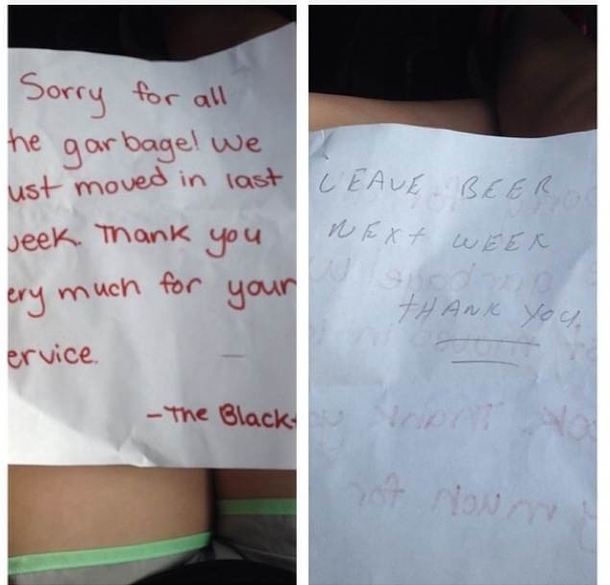 Sorry for all
he garbage! we
ust moved in last
week. Thank you
ery much for your
ervice.
-The Black
LEAVE BEER
NEXT WEEK
THANK YOU